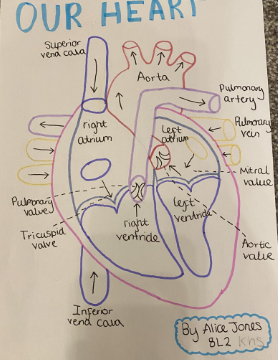 OUR HEART
Superior
vena cava
Aorta
Pulmonary
artery
Pulmonary
vein
right
atrium
Left
atrium
Mitral
valve
Pulmonary
valve
Tricuspid
valve
right
ventricle
left
ventricle
Aortic
valve
Inferior
vena cava
By Alice Jones
8L2 KHS